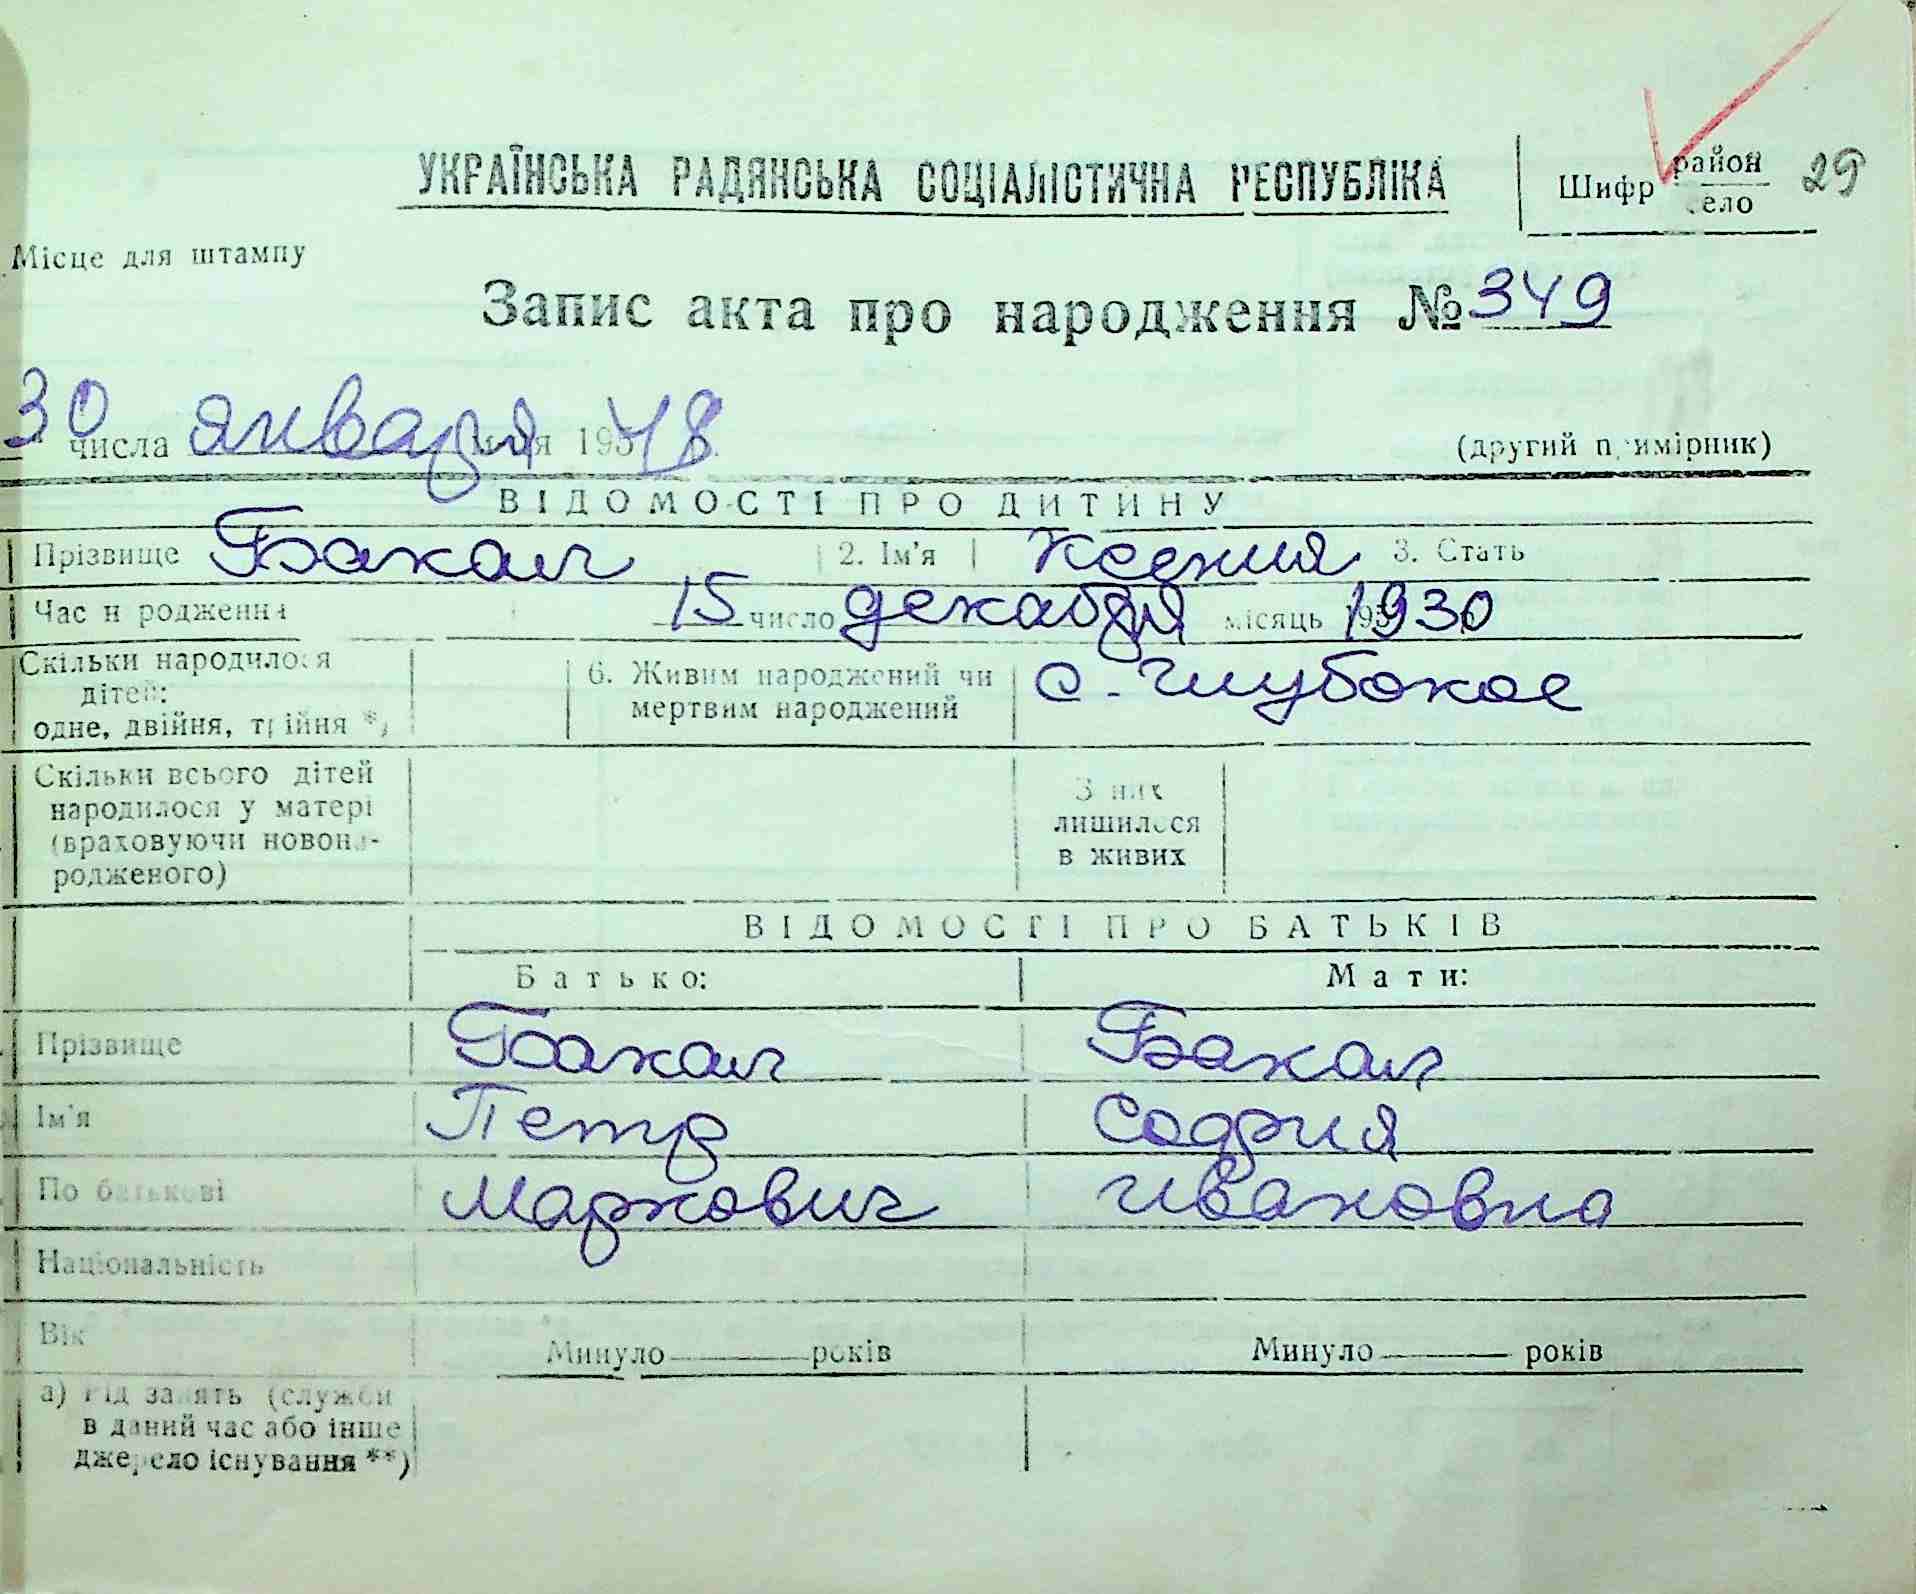 УКРАЇНСЬКА РАДЯНСЬКА СОЦІАЛІСТИЧНА РЕСПУБЛІКА
Шифр район село 29
Місце для штампу
Запис акта про народження № 349
30 числа января 1948
(другий примірник)
ВІДОМОСТІ ПРО ДИТИНУ
Прізвище Бакал 2. Ім'я Ксения 3. Стать
Час народження 15 число декабря місяць 1930
Скільки народилося дітей: одне, двійня, трійня *) 6. Живим народжений чи мертвим народжений с. Глубокое
Скільки всього дітей народилося у матері (враховуючи новонародженого) З них лишилося в живих
ВІДОМОСТІ ПРО БАТЬКІВ
Батько: Мати:
Прізвище Бакал Бакал
Ім'я Петр София
По батькові Маркович Ивановна
Національність
Вік Минуло — років Минуло — років
а) Рід занять (служби в даний час або інше джерело існування **)